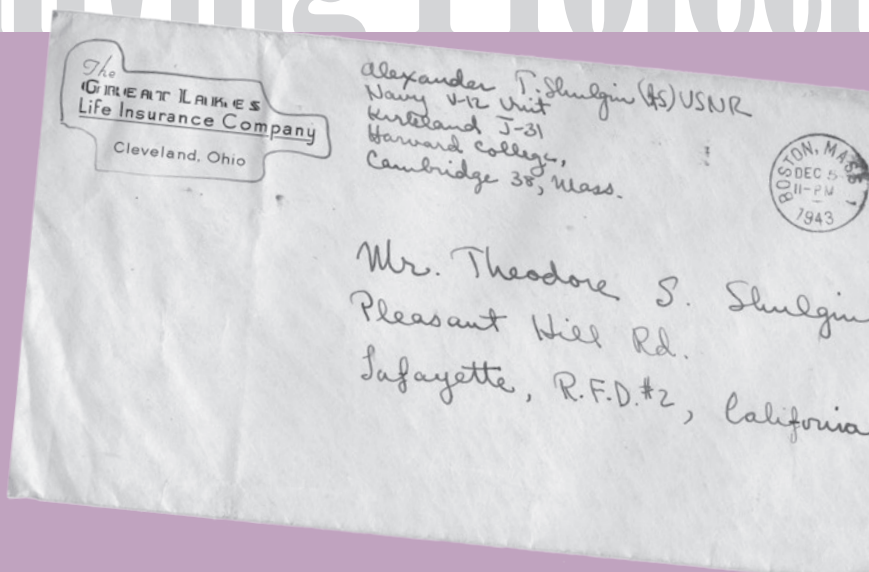 The
GREAT LAKES
Life Insurance Company
Cleveland, Ohio
Alexander T. Shulgin (AS) USNR
Navy V-12 Unit
Kirkland J-31
Harvard College,
Cambridge 38, Mass.
BOSTON, MASS
DEC 5
11-PM
1943
Mr. Theodore S. Shulgin
Pleasant Hill Rd.
Lafayette, R.F.D.#2, California